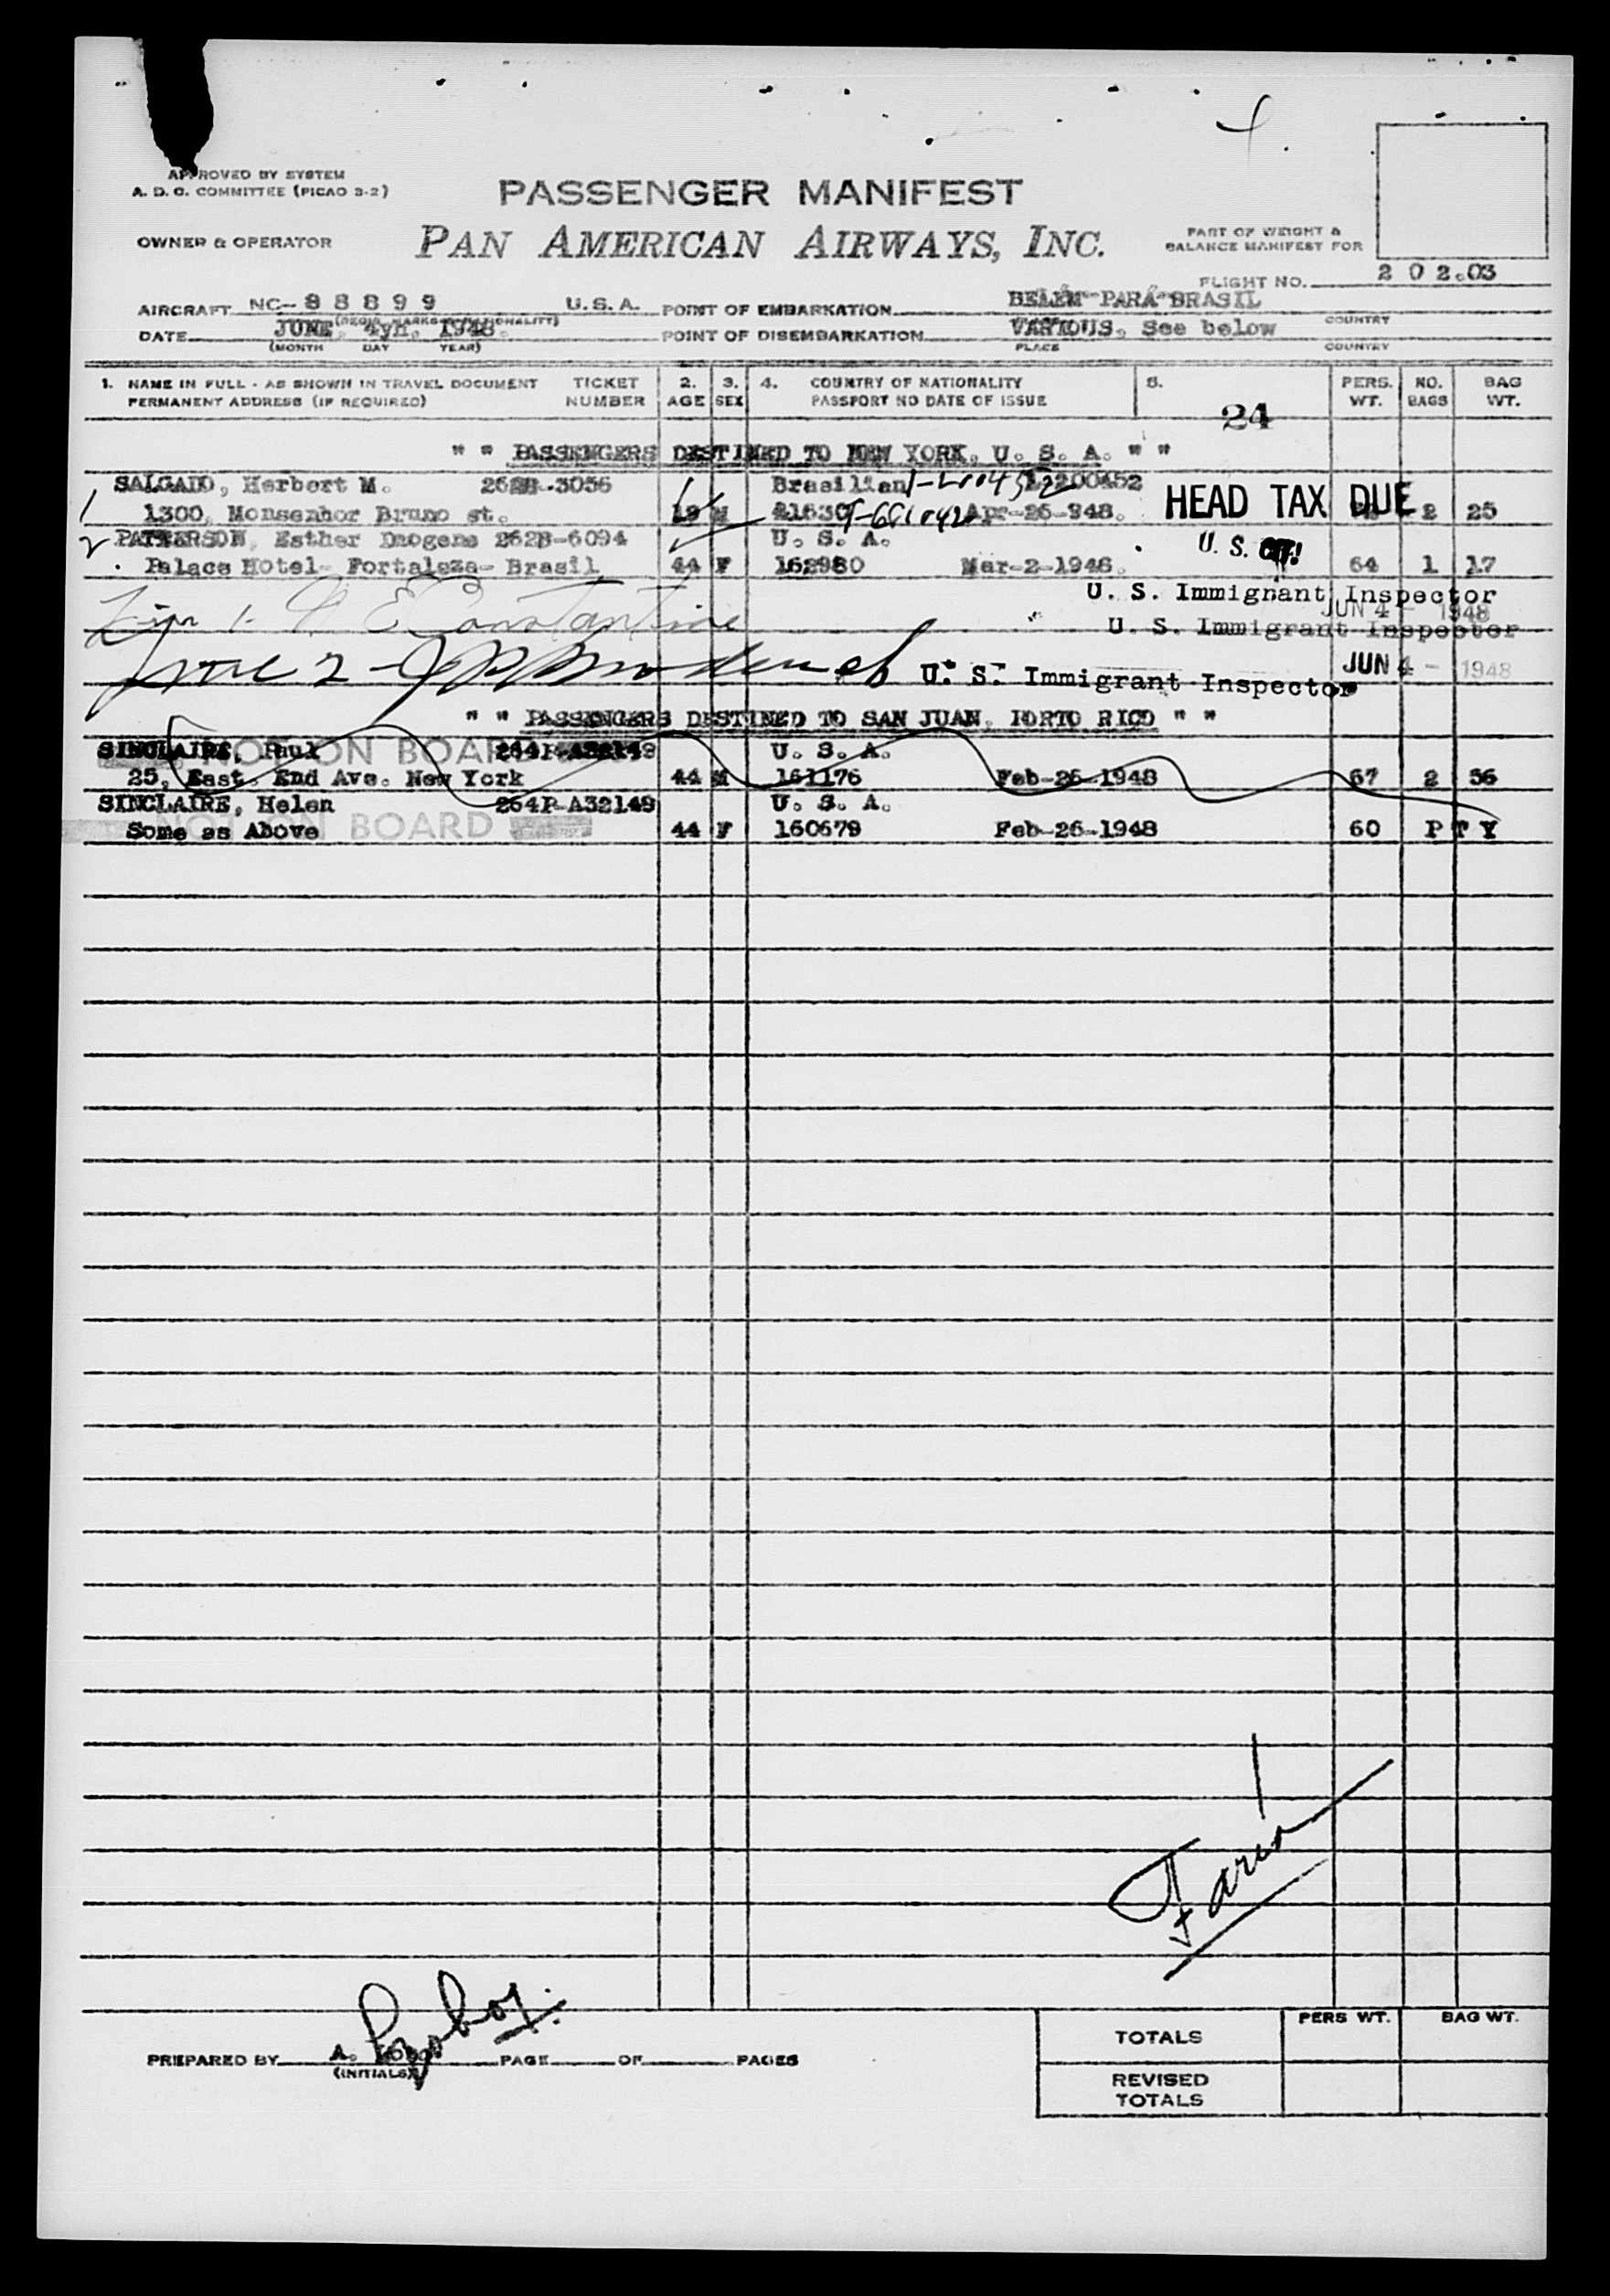 APPROVED BY SYSTEM
A. D. C. COMMITTEE (PICAO 3-2)
PASSENGER MANIFEST
OWNER & OPERATOR
PAN AMERICAN AIRWAYS, INC.
PART OF WEIGHT &
BALANCE MANIFEST FOR
FLIGHT NO. 2 0 2.03
AIRCRAFT NC-88899 U.S.A. POINT OF EMBARKATION BELÉM-PARÁ-BRASIL
COUNTRY
DATE JUNE, 4yh, 1948. POINT OF DISEMBARKATION VARIOUS, See below
(MONTH DAY YEAR) PLACE COUNTRY
1. NAME IN FULL - AS SHOWN IN TRAVEL DOCUMENT TICKET 2. 3. 4. COUNTRY OF NATIONALITY 5. PERS. NO. BAG
PERMANENT ADDRESS (IF REQUIRED) NUMBER AGE SEX PASSPORT NO DATE OF ISSUE WT. BAGS WT.
24
" " PASSENGERS DESTINED TO NEW YORK, U. S. A. " "
SALGADO, Herbert M. 262B-3056 Brasilian
1 1300, Monsenhor Bruno st. M Apr-26-948. HEAD TAX DUE 2 25
2 PATTERSON, Esther 262B-6094 U. S. A. U. S.
Palace Hotel- Fortaleza- Brasil 44 F 162980 Mar-2-1948. 64 1 17
U. S. Immigrant Inspector
JUN 4 - 1948
Constantine
U. S. Immigrant Inspector
JUN 4 - 1948
U. S. Immigrant Inspector
" " PASSENGERS DESTINED TO SAN JUAN, PORTO RICO " "
NOT ON BOARD
SINCLAIRE, Paul 264P-A32149 U. S. A.
25, East. End Ave. New York 44 M 161176 Feb-26-1948 67 2 56
SINCLAIRE, Helen 264P-A32149 U. S. A.
NOT ON BOARD
Some as Above 44 F 160679 Feb-26-1948 60 P T Y
Faria
TOTALS PERS WT. BAG WT.
PREPARED BY A. PAGE OF PAGES
(INITIALS)
REVISED
TOTALS